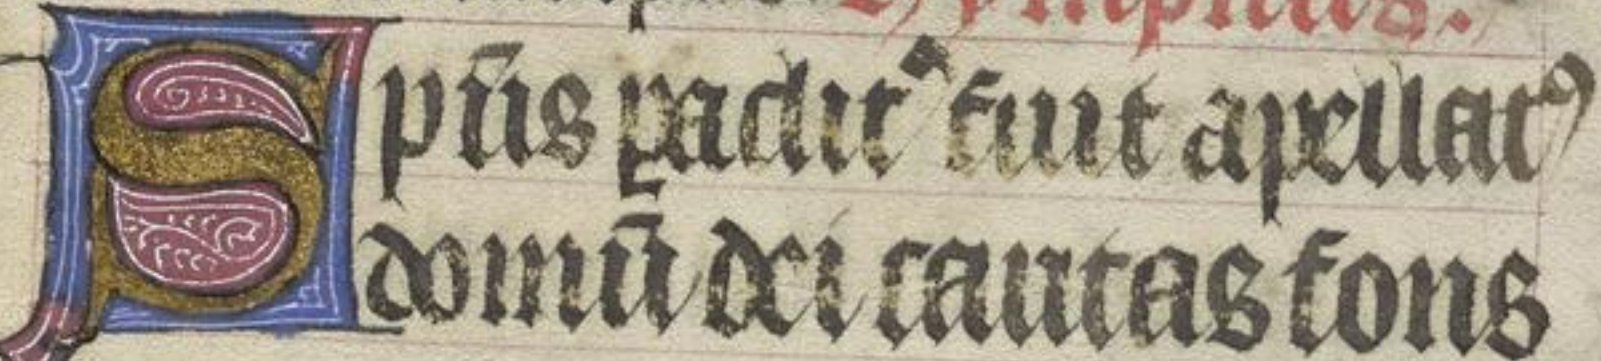 Hympnus.
Spūs paclit᷑ fuit apellatꝰ
domū dei caritas fons